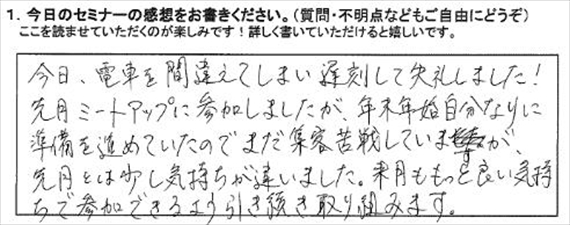 1. 今日のセミナーの感想をお書きください。(質問・不明点などもご自由にどうぞ)
ここを読ませていただくのが楽しみです!詳しく書いていただけると嬉しいです。
今日、電車を間違えてしまい遅刻して失礼しました!
先月ミートアップに参加しましたが、年末年始自分なりに
準備を進めていたのでまだ集客苦戦していますが、
先月とは少し気持ちが違いました。来月ももっと良い気持
ちで参加できるよう引き続き取り組みます。